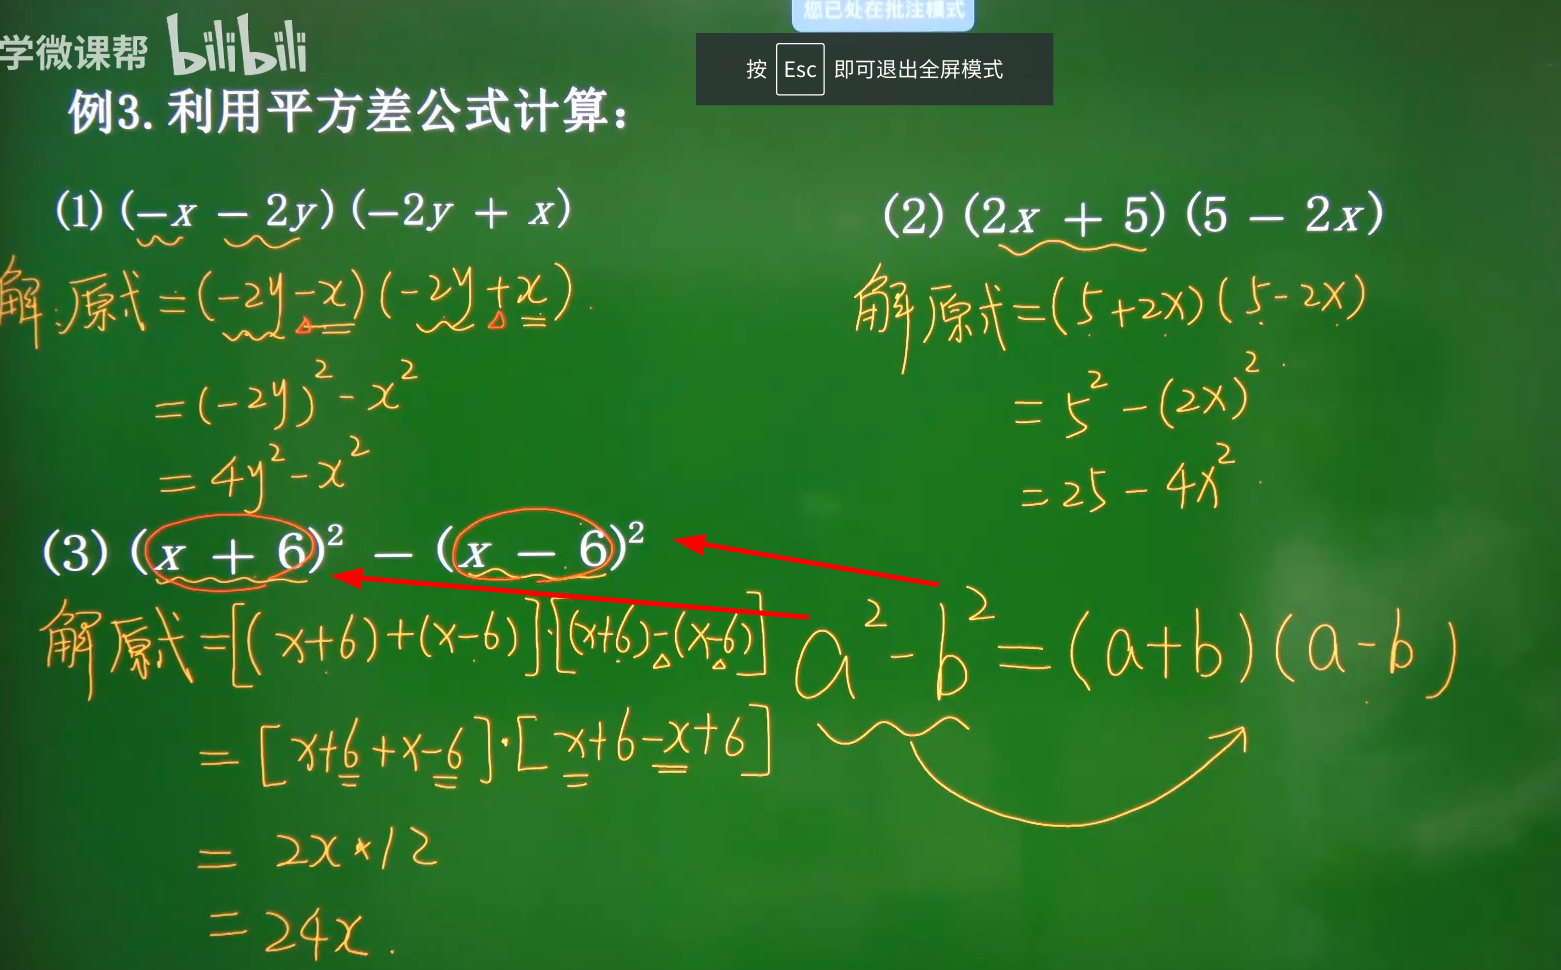 您已处在批注模式
学微课帮 bilibili
按 Esc 即可退出全屏模式
例3.利用平方差公式计算：
(1)(-x - 2y)(-2y + x)
解:原式=(-2y-x)(-2y+x).
=(-2y)²-x²
=4y²-x²
(2)(2x + 5)(5 - 2x)
解 原式=(5+2x)(5-2x)
=5²-(2x)²
=25-4x²
(3)(x + 6)² - (x - 6)²
解 原式=[(x+6)+(x-6)]·[(x+6)-(x-6)]
=[x+6+x-6]·[x+6-x+6]
= 2x*12
=24x.
a²-b²=(a+b)(a-b)